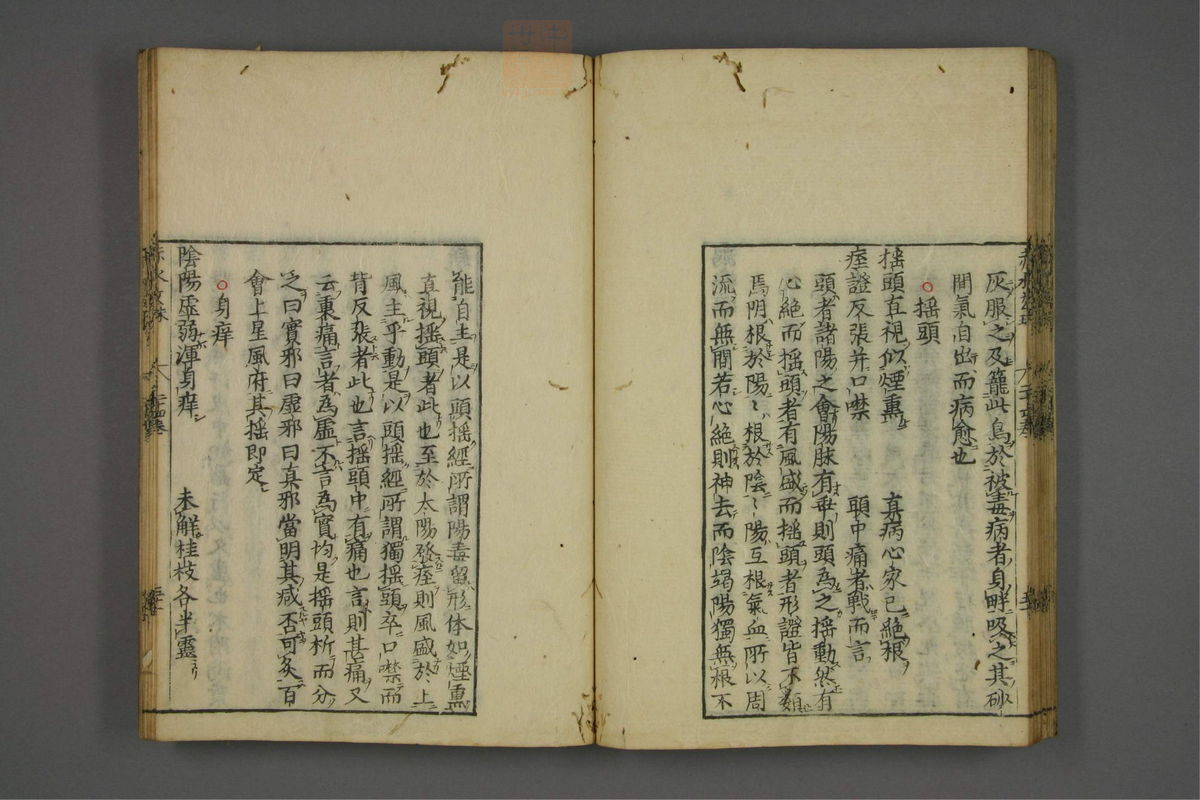 灰服之及籠此鳥於被毒病者身畔吸之其砂
間氣自出而病愈也
搖頭
搖頭直視似煙熏 真病心家已絶根
痓證反張并口噤 頭中痛者戰而言
頭者諸陽之會陽脉有乖則頭為之搖動然有
心絶而搖頭者有風盛而搖頭者形證皆不類
焉明根於陽〻根於陰〻陽互根氣血所以周
流而無間若心絶則神去而陰竭陽獨無根不
能自主是以頭搖經所謂陽毒留形体如煙熏
直視搖頭者此也至於太陽發痓則風盛於上
風主乎動是以頭搖經所謂獨搖頭卒口噤而
背反張者此也言搖頭中有痛也言則甚痛又
云裏痛言者為虛不言為實均是搖頭析而分
之曰實邪曰虛邪曰真邪當明其咸否可灸百
會上星風府其搖即定
身痒
陰陽虛弱渾身痒 未解桂枝各半靈